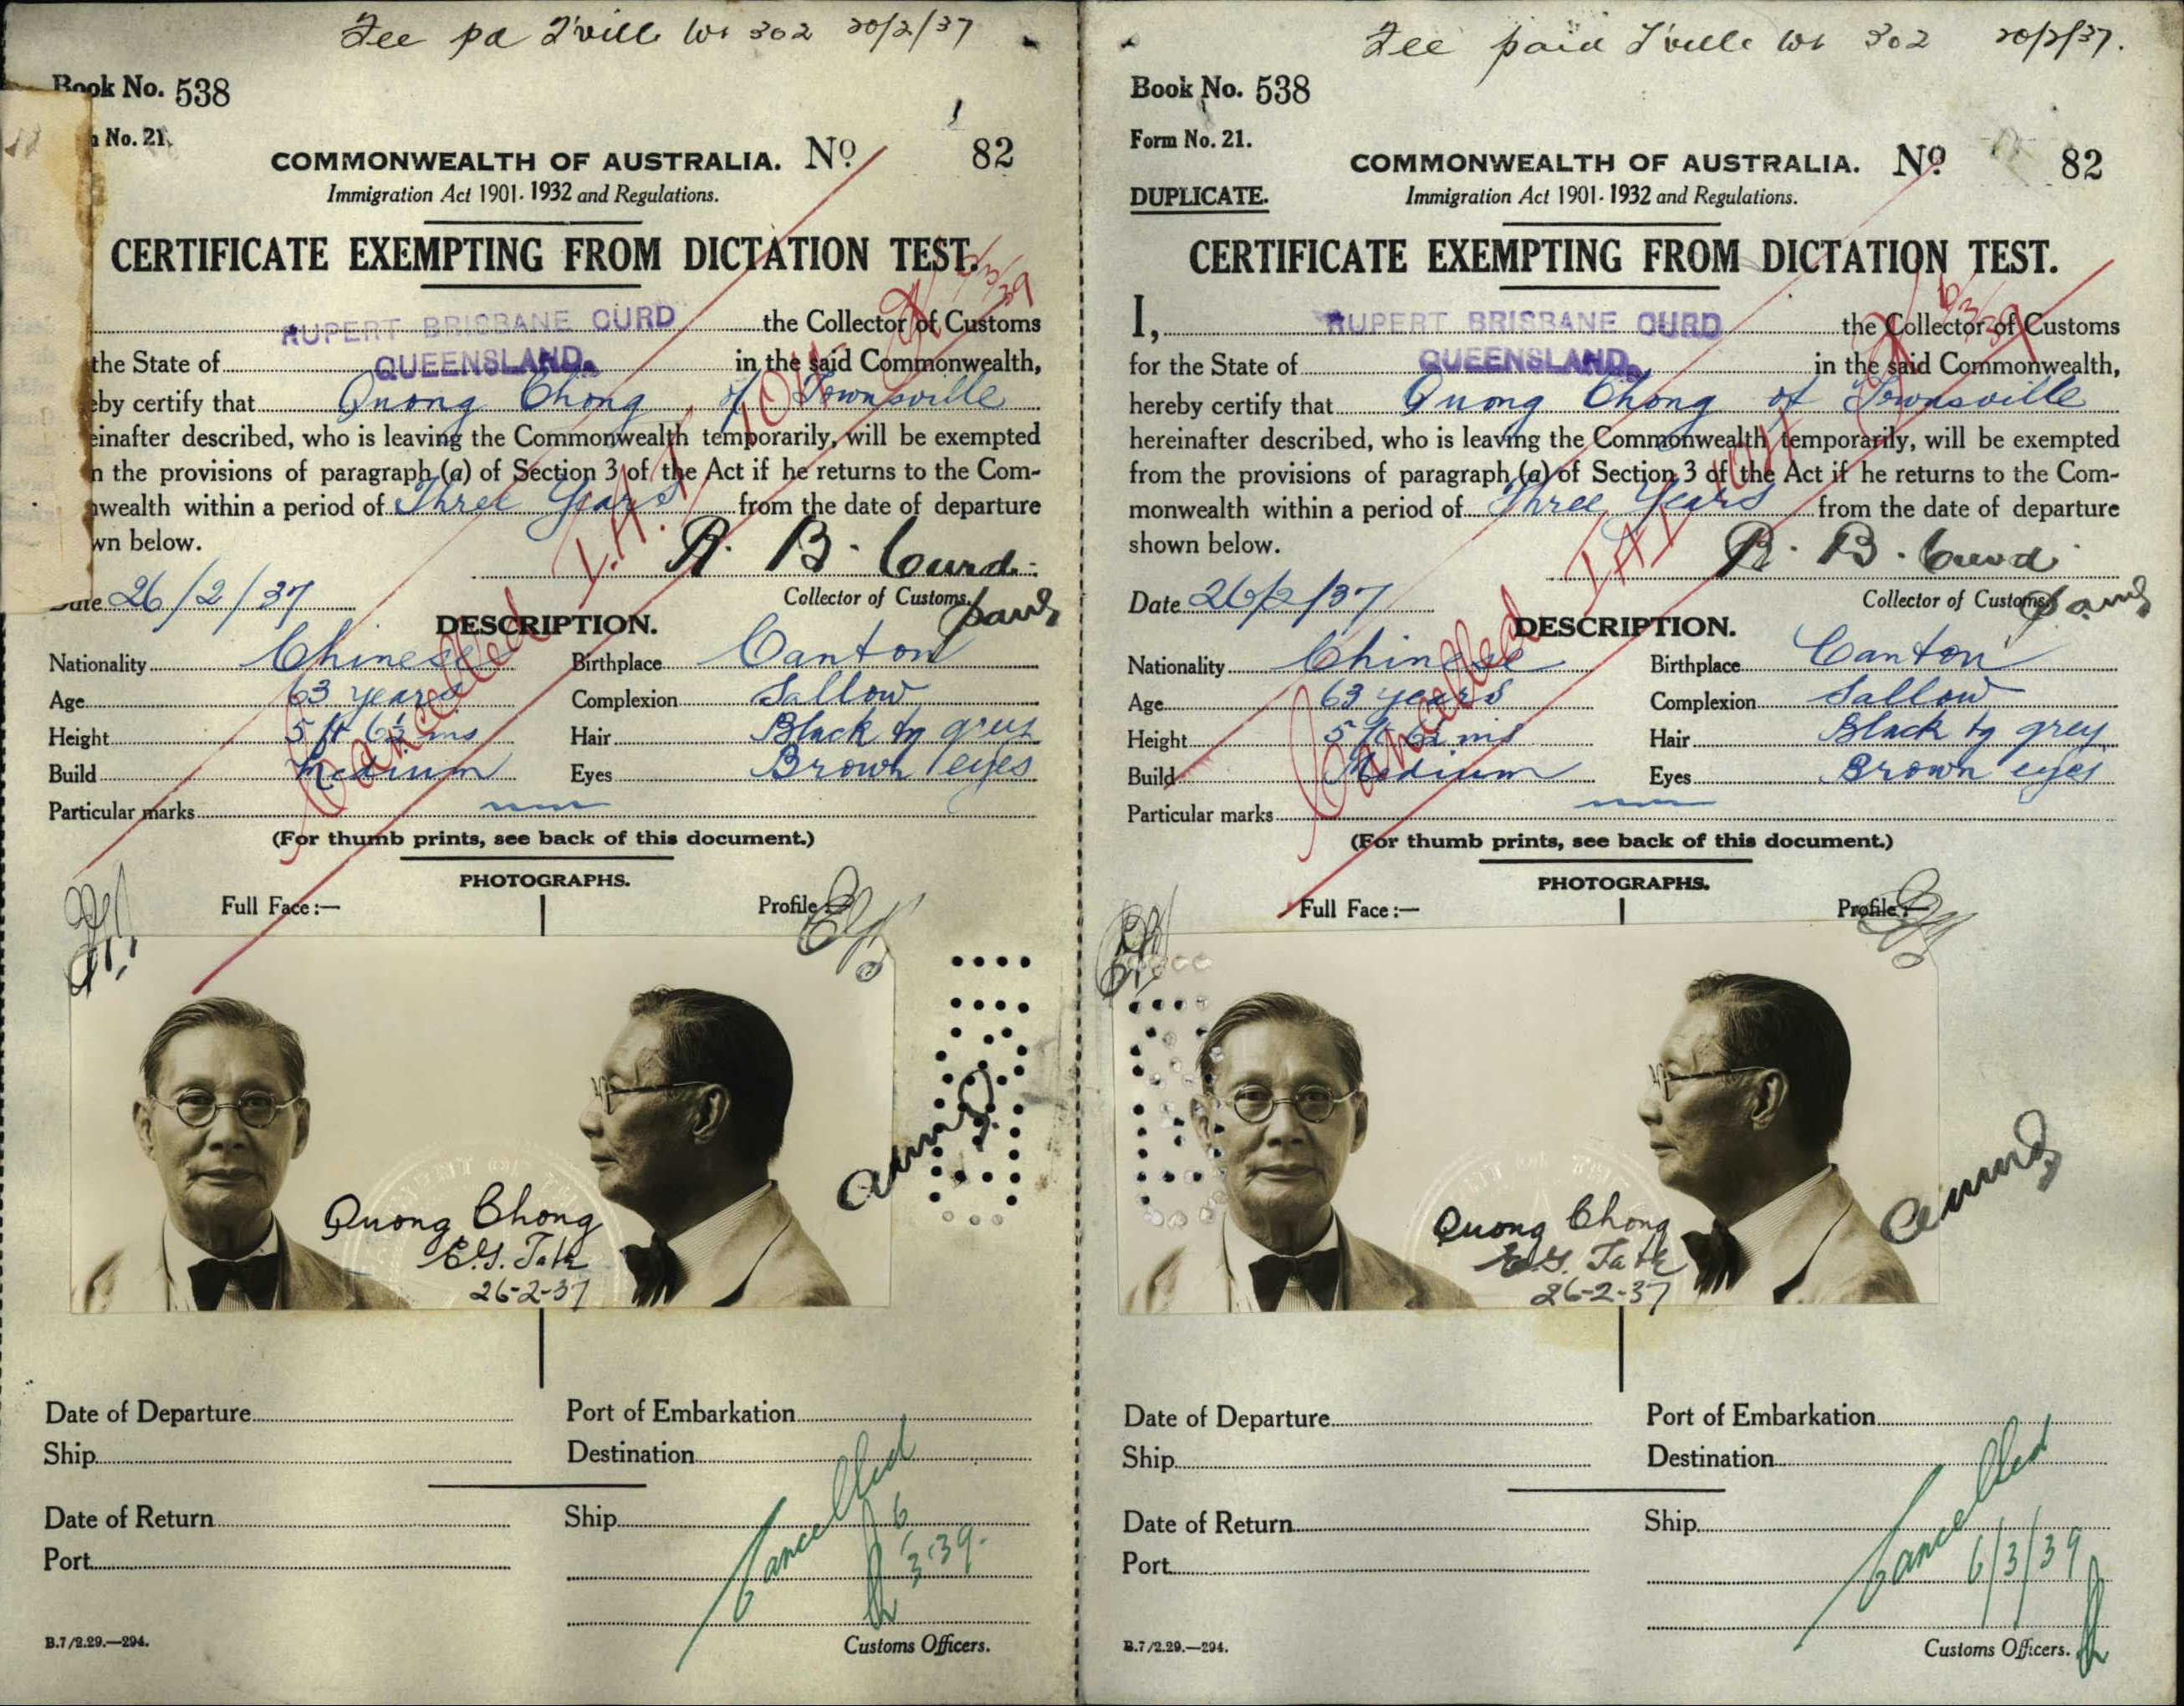 Fee pd T'ville Wt 302 20/2/37
Book No. 538
No. 21.
COMMONWEALTH OF AUSTRALIA. No 82
Immigration Act 1901-1932 and Regulations.
CERTIFICATE EXEMPTING FROM DICTATION TEST.
RUPERT BRISBANE CURD the Collector of Customs
the State of QUEENSLAND. in the said Commonwealth,
eby certify that Quong Chong of Townsville
einafter described, who is leaving the Commonwealth temporarily, will be exempted
the provisions of paragraph (a) of Section 3 of the Act if he returns to the Com-
wealth within a period of Three Years from the date of departure
wn below.
R. B. Curd.
Date 26/2/37
Collector of Customs.
Cancelled
DESCRIPTION.
Nationality Chinese Birthplace Canton
Age 63 years Complexion Sallow
Height 5 ft 6½ ins Hair Black tg grey
Build Medium Eyes Brown eyes
Particular marks
(For thumb prints, see back of this document.)
PHOTOGRAPHS.
Full Face:— Profile:—
Quong Chong
26-2-37
Date of Departure Port of Embarkation
Ship Destination
Date of Return Ship
Port
Cancelled
6/3/39.
B.7/2.29.—294.
Customs Officers.
Fee paid T'ville Wt 302 20/2/37.
Book No. 538
Form No. 21.
COMMONWEALTH OF AUSTRALIA. No 82
DUPLICATE.
Immigration Act 1901-1932 and Regulations.
CERTIFICATE EXEMPTING FROM DICTATION TEST.
I, RUPERT BRISBANE CURD the Collector of Customs
for the State of QUEENSLAND. in the said Commonwealth,
hereby certify that Quong Chong of Townsville
hereinafter described, who is leaving the Commonwealth temporarily, will be exempted
from the provisions of paragraph (a) of Section 3 of the Act if he returns to the Com-
monwealth within a period of Three Years from the date of departure
shown below.
R. B. Curd
Date 26/2/37
Collector of Customs.
Cancelled
DESCRIPTION.
Nationality Chinese Birthplace Canton
Age 63 years Complexion Sallow
Height 5 ft 6½ ins Hair Black tg grey
Build Medium Eyes Brown eyes
Particular marks
(For thumb prints, see back of this document.)
PHOTOGRAPHS.
Full Face:— Profile:—
Quong Chong
26-2-37
Date of Departure Port of Embarkation
Ship Destination
Date of Return Ship
Port
Cancelled
6/3/39
B.7/2.29.—294.
Customs Officers.